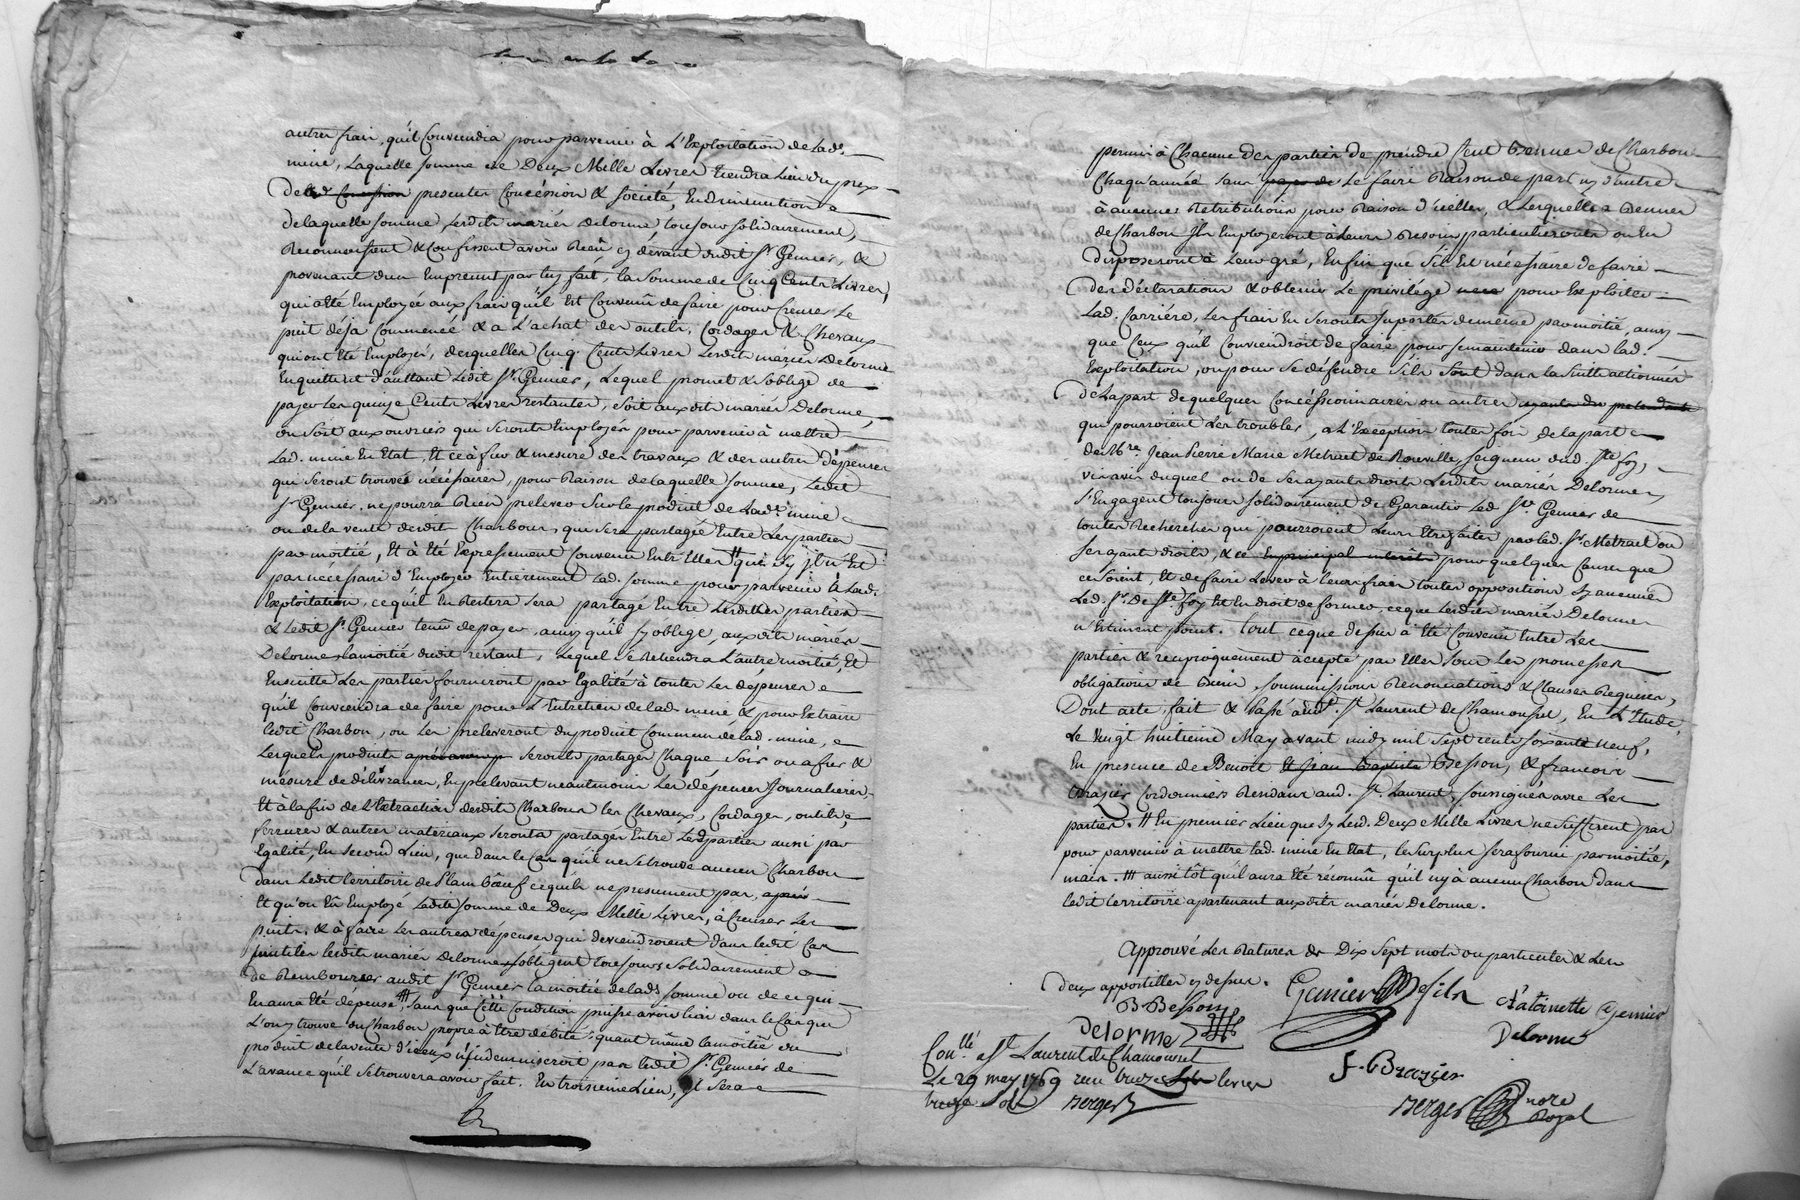 autres frais qu'il Conviendra pour parvenir à L'Exploitation de Lade.
mine, Laquelle somme de Deux Mille Livres tiendra Lieu du prix
De presentes Concéssion & societé, En diminution
de laquelle somme Lesdits mariés delorme toujours solidairement,
Reconnoissent & Confessent avoir Reçu cy devant dudit Sr. Genier, &
provenant d'un Emprunt par luy fait, la somme de Cinq Cents Livres,
qui a Eté Employée aux frais qu'il Est Convenû de faire pour Creuser Le
puit déja Commencé & a L'achat des outils, Cordages & Chevaux
qui ont Eté Employés, desquelles Cinq Cents Livres Lesdits mariés Delorme
Enquittent d'autant Ledit Sr. Genier, Lequel promet & s'oblige de
payer Les quinze Cents Livres restantes, soit auxdits mariés Delorme,
ou soit aux ouvriers qui seronts Employés pour parvenir à mettre
Lad. mine En Etat, Et ce à fur & mesure des travaux & des autres dépenses
qui seront trouvés nécéssaires, pour Raison de laquelle somme, Ledit
Sr. Genier, ne pourra Rien prelever sur le produit de Lade. mine
ou de la vente desdits Charbons, qui sera partagée Entre Les parties
par moitié, Et à Eté Expressement Convenu Entr'Elles # que s'il n'Est
pas nécéssaire d'Employer Entierement lad. somme pour parvenir à Lad.
Exploitation, ce qu'il En Restera sera partagé Entre Lesdittes parties
& Ledit Sr. Genier tenû de payer, ainsy qu'il s'y oblige, auxdits mariés
Delorme, la moitié dudit restant, Lequel se Retiendra L'autre moitié, Et
Ensuitte Les parties fourniront par Egalité à toutes Les dépenses
qu'il Conviendra de faire pour L'Entretien de lad. mine & pour Extraire
ledit Charbon, ou Les preleveront du produit Commun de lad. mine,
Lesquels produits seronts partagés Chaque Soir ou a fur &
mesure de délivrances, En prelevant neantmoins Les dépenses Journalieres,
Et à la fin de L'Extraction desdits Charbons les Chevaux, Cordages, outils,
ferrures & autres matériaux seronts partagés Entre Lesd. parties aussi par
Egalité, En second Lieu, que dans le Cas qu'il ne se trouve aucun Charbon
dans Ledit territoire de Plambœuf ce qu'ils ne presument pas,
Et qu'on Eû Employé Ladite somme de Deux Mille Livres, à Creuser Les
puits, & à faire Les autres dépenses qui deviendroient dans Ledit Cas
inutiles lesdits mariés delorme s'obligent toujours solidairement
de Rembourser audit Sr. Genier la moitié de lade. somme ou de ce qui
En aura Eté dépensé, ### sans que Cette Condition puisse avoir lieu dans le Cas que
L'on trouve du Charbon propre à être débité, quant même la moitié du
produit de la vente d'iceux n'indemniseroit pas ledit Sr. Genier de
L'avance qu'il se trouvera avoir fait. En troisieme Lieu, il sera
permis à Chacune des parties de prendre Cent Bennes de Charbon
Chaqu'année sans se faire Raison de part ny d'autre
à aucunes Retributions pour Raison d'icelles, & Lesquelles Bennes
de Charbon Ils Employeront à Leurs Besoins particulieronts ou En
Disposeront à Leur gré, Enfin que s'il Est nécéssaire de faire
Des déclarations & obtenir Le privilége pour Exploiter
Lad. Carriére, Les frais En seronts suportés de même par moitié, ainsy
que Ceux qu'il Conviendroit de faire pour se maintenir dans lad.
Exploitation, ou pour se défendre s'ils sont dans la suitte actionnés
De la part de quelques Concéssionnaires ou autres
qui pourroient Les troubler, à L'Exception toutes fois de la part
de Mre. Jean Pierre Marie Metraet de Rouville, seigneur dud. Ste. foy,
vis avis duquel ou de ses ayants droits Lesdits mariés Delorme
s'Engagent toujours solidairement de Garantir Led. Sr. Genier de
toutes Recherches qui pourroient Leurs Etre faites par led. Sr. Metraet ou
ses ayant droits, & ce pour quelques Causes que
ce soient, Et de faire Lever à leurs frais toutes oppositions sy aucunes
Led. Sr. De Ste. foy Est En droit de former, ce que Lesdits mariés Delorme
n'Estiment point. tout ce que dessus à Eté Convenû Entre Les
parties & reciproquement accepté par Elles sous Les promesses
obligations de Biens, soummissions Renonciations & Clauses Requises,
Dont acte, fait & Passé audt. St. Laurent de Chamousset, En L'Etude,
Le Vingt huitieme May avant midy mil sept cents soixante neuf,
En presence de Benoît Besson, & francois
Brazier Cordonniers Residants aud. St. Laurent, soussignés avec Les
parties. # En premier Lieu que sy Lesd. Deux Mille Livres ne suffisent pas
pour parvenir à mettre lad. mine En Etat, le surplus sera fourni par moitié,
mais. ### aussi tôt qu'il aura Eté reconnû qu'il n'y à aucun Charbon dans
ledit territoire apartenant auxdits mariés delorme.
Approuvé Les Ratures de Dix sept mots ou particules & Les
deux apostilles cy dessus.
Genier fils
Antoinette Genier
B Besson
Delorme
Delorme
Conllé. a St. Laurent de Chamousset
Le 29 may 1769 reçu livres
sols Berger
F. Brazier
Berger nore
Royal